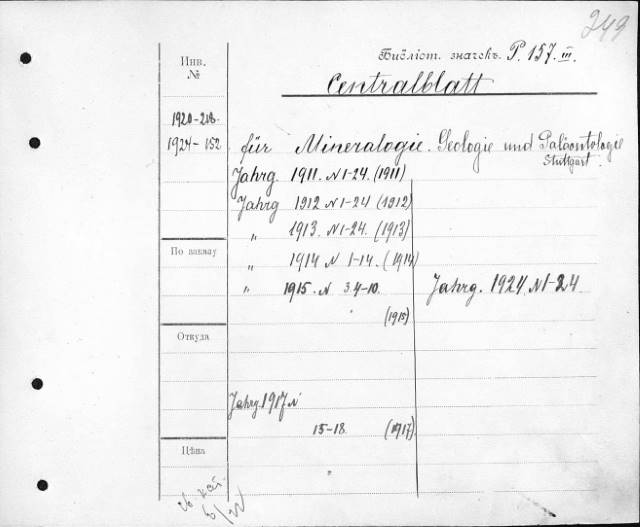 249
Библіот. значекъ P. 157. III.
Centralblatt
Инв.
№
1920-218.
1924-152
für Mineralogie. Geologie und Paläontologie
Stuttgart.
Jahrg. 1911. N 1-24. (1911)
Jahrg 1912 N 1-24 (1912)
„ 1913. N 1-24. (1913)
По заказу
„ 1914 N 1-14. (1914)
„ 1915. N 3.4-10. Jahrg. 1924. N 1-24.
(1915)
Откуда
Jahrg. 1917 N
15-18. (1917)
Цѣна